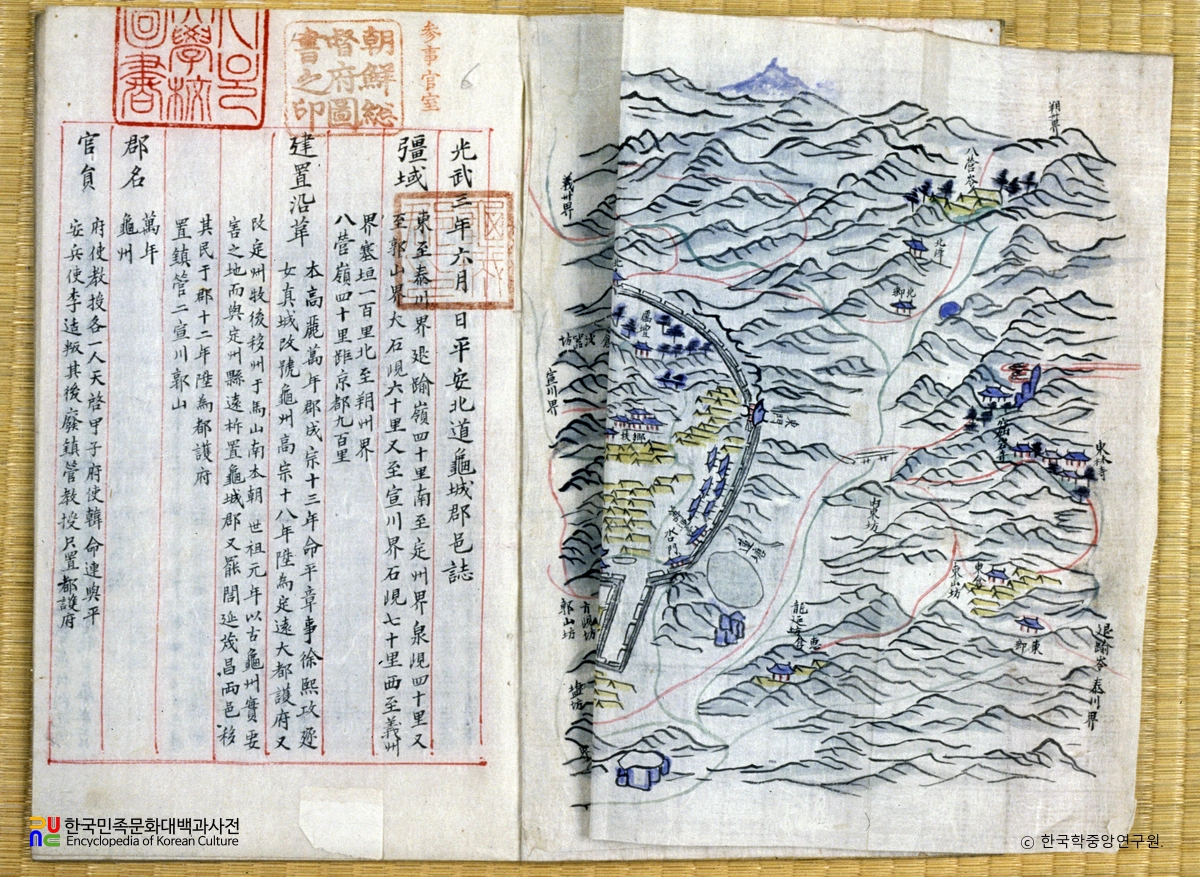 朝鮮総
督府圖
書之印
参事官室
6
光武三年六月 日平安北道龜城郡邑誌
彊域
東至泰川界退踰嶺四十里南至定州界泉峴四十里又
至郭山界大石峴六十里又至宣川界石峴七十里西至義州
界塞垣一百里北至朔州界
八營嶺四十里距京都九百里
建置沿革
本高麗萬年郡成宗十三年命平章事徐熙攻逐
女眞城改號龜州高宗十八年陞為定遠大都護府又
改定州牧後移州于馬山南本朝 世祖元年以古龜州實要
害之地而與定州縣遠析置龜城郡又罷閭延茂昌两邑移
其民于郡十二年陞為都護府
置鎮管二宣川郭山
郡名
萬年
龜州
官員
府使教授各一人天啓甲子府使韓命連與平
安兵使李适叛其後廢鎮管教授只置都護府
朔州界
八營岺
義州界
北倉
北鄕
宣川界
東門
鄕校
水口門
蓮池
南東坊
東山坊
東倉
龍运坊倉
郭山坊
鹽坊
退踰岺
泰川界
한국민족문화대백과사전
Encyclopedia of Korean Culture
ⓒ 한국학중앙연구원.